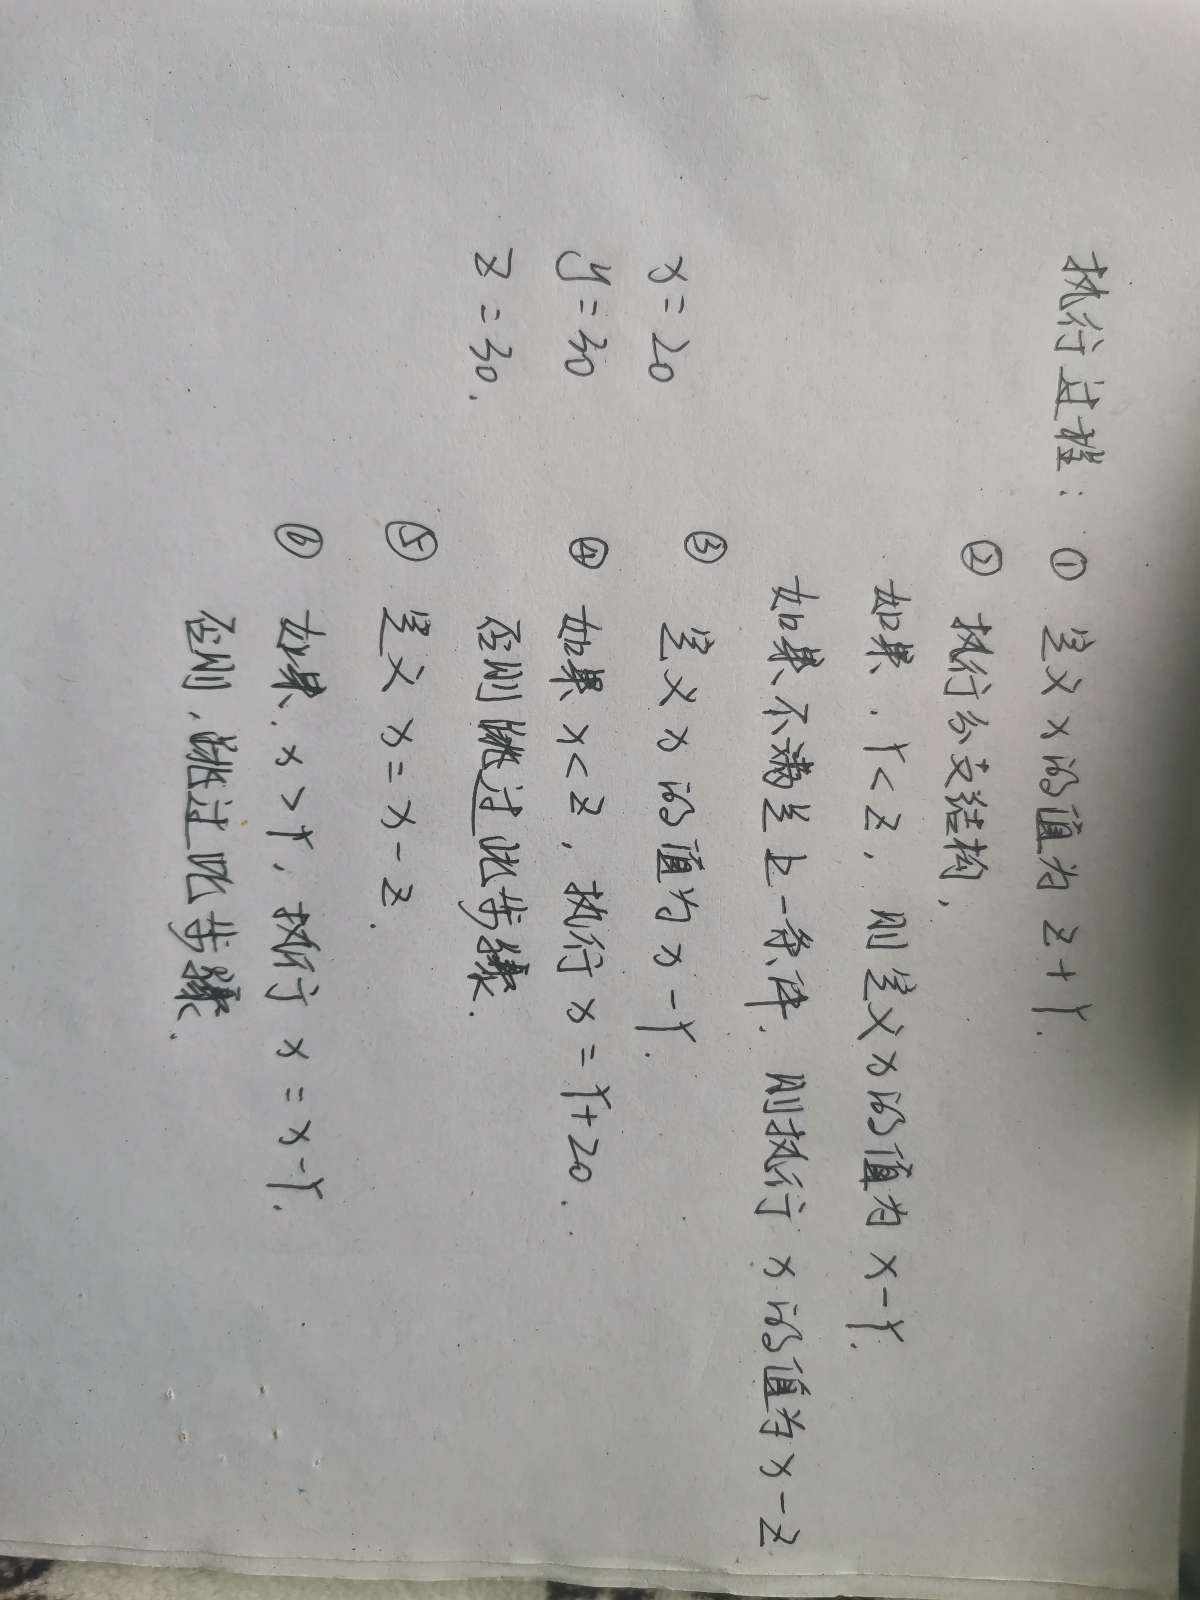 执行过程：① 定义x的值为z+Y.
② 执行分支结构,
如果.Y<z,则定义x的值为x-Y.
如果不满足上一条件,则执行x的值为x-z
x=20
y=30
z=30.
③ 定义x的值为x-Y.
④ 如果x<z,执行x=Y+20.
否则跳过此步骤.
⑤ 定义x=x-z.
⑥ 如果.x>Y,执行x=x-Y.
否则,跳过此步骤.